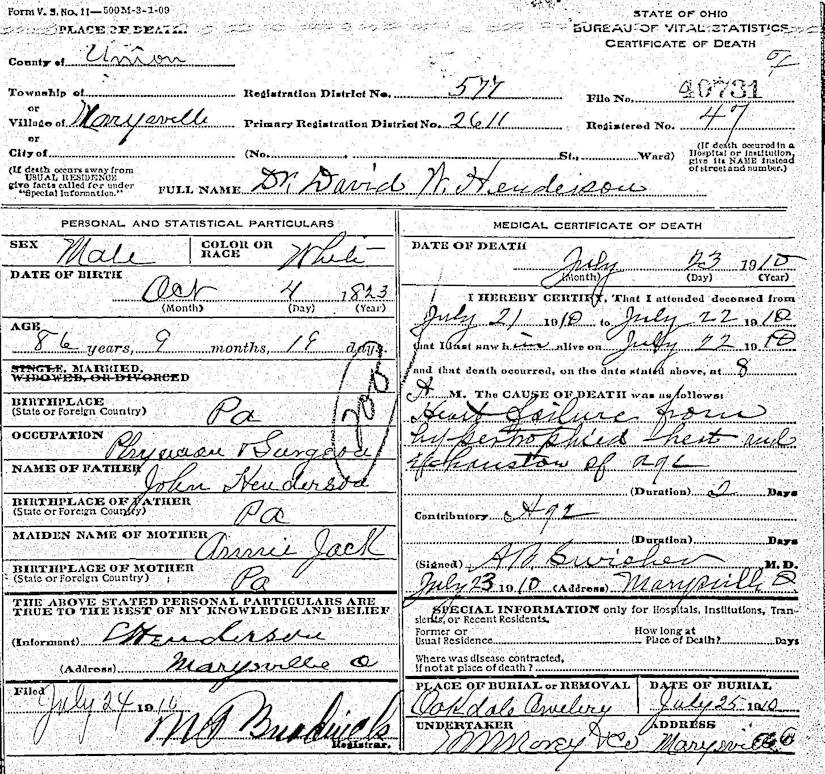 Form V. S. No. 11—500M-3-1-09
STATE OF OHIO
BUREAU OF VITAL STATISTICS
CERTIFICATE OF DEATH
PLACE OF DEATH.
County of Union
Township of
or
Village of Marysville
or
City of
(If death occurs away from
USUAL RESIDENCE
give facts called for under
"Special Information.")
Registration District No. 577
File No. 40731
Primary Registration District No. 2611
Registered No. 47
(No. , St., Ward)
(If death occured in a
Hospital or Institution,
give its NAME instead
of street and number.)
FULL NAME Dr. David W. Henderson
PERSONAL AND STATISTICAL PARTICULARS
SEX Male COLOR OR RACE White
DATE OF BIRTH
Oct 4 1823
(Month) (Day) (Year)
AGE
86 years, 9 months, 19 days.
SINGLE, MARRIED,
WIDOWED, OR DIVORCED
BIRTHPLACE
(State or Foreign Country) Pa
OCCUPATION Physician & Surgeon
NAME OF FATHER John Henderson
BIRTHPLACE OF FATHER
(State or Foreign Country) Pa
MAIDEN NAME OF MOTHER Annie Jack
BIRTHPLACE OF MOTHER
(State or Foreign Country) Pa
THE ABOVE STATED PERSONAL PARTICULARS ARE
TRUE TO THE BEST OF MY KNOWLEDGE AND BELIEF
(Informant) Henderson
(Address) Marysville O
Filed July 24 1910
Registrar.
MEDICAL CERTIFICATE OF DEATH
DATE OF DEATH
July 23 1910
(Month) (Day) (Year)
I HEREBY CERTIFY, That I attended deceased from
July 21 1910 to July 22 1910
that I last saw him alive on July 22 1910
and that death occurred, on the date stated above, at 8
A M. The CAUSE OF DEATH was as follows:
Heart failure from
hypertrophied heart and
exhaustion of age
(Duration) 2 Days
Contributory Age
(Duration) Days
(Signed) M. D.
July 23 1910 (Address) Marysville O
SPECIAL INFORMATION only for Hospitals, Institutions, Tran-
sients, or Recent Residents.
Former or
Usual Residence
How long at
Place of Death? Days
Where was disease contracted,
if not at place of death?
PLACE OF BURIAL or REMOVAL
Oakdale Cemetery
DATE OF BURIAL
July 25 1910
UNDERTAKER
ADDRESS
Marysville O